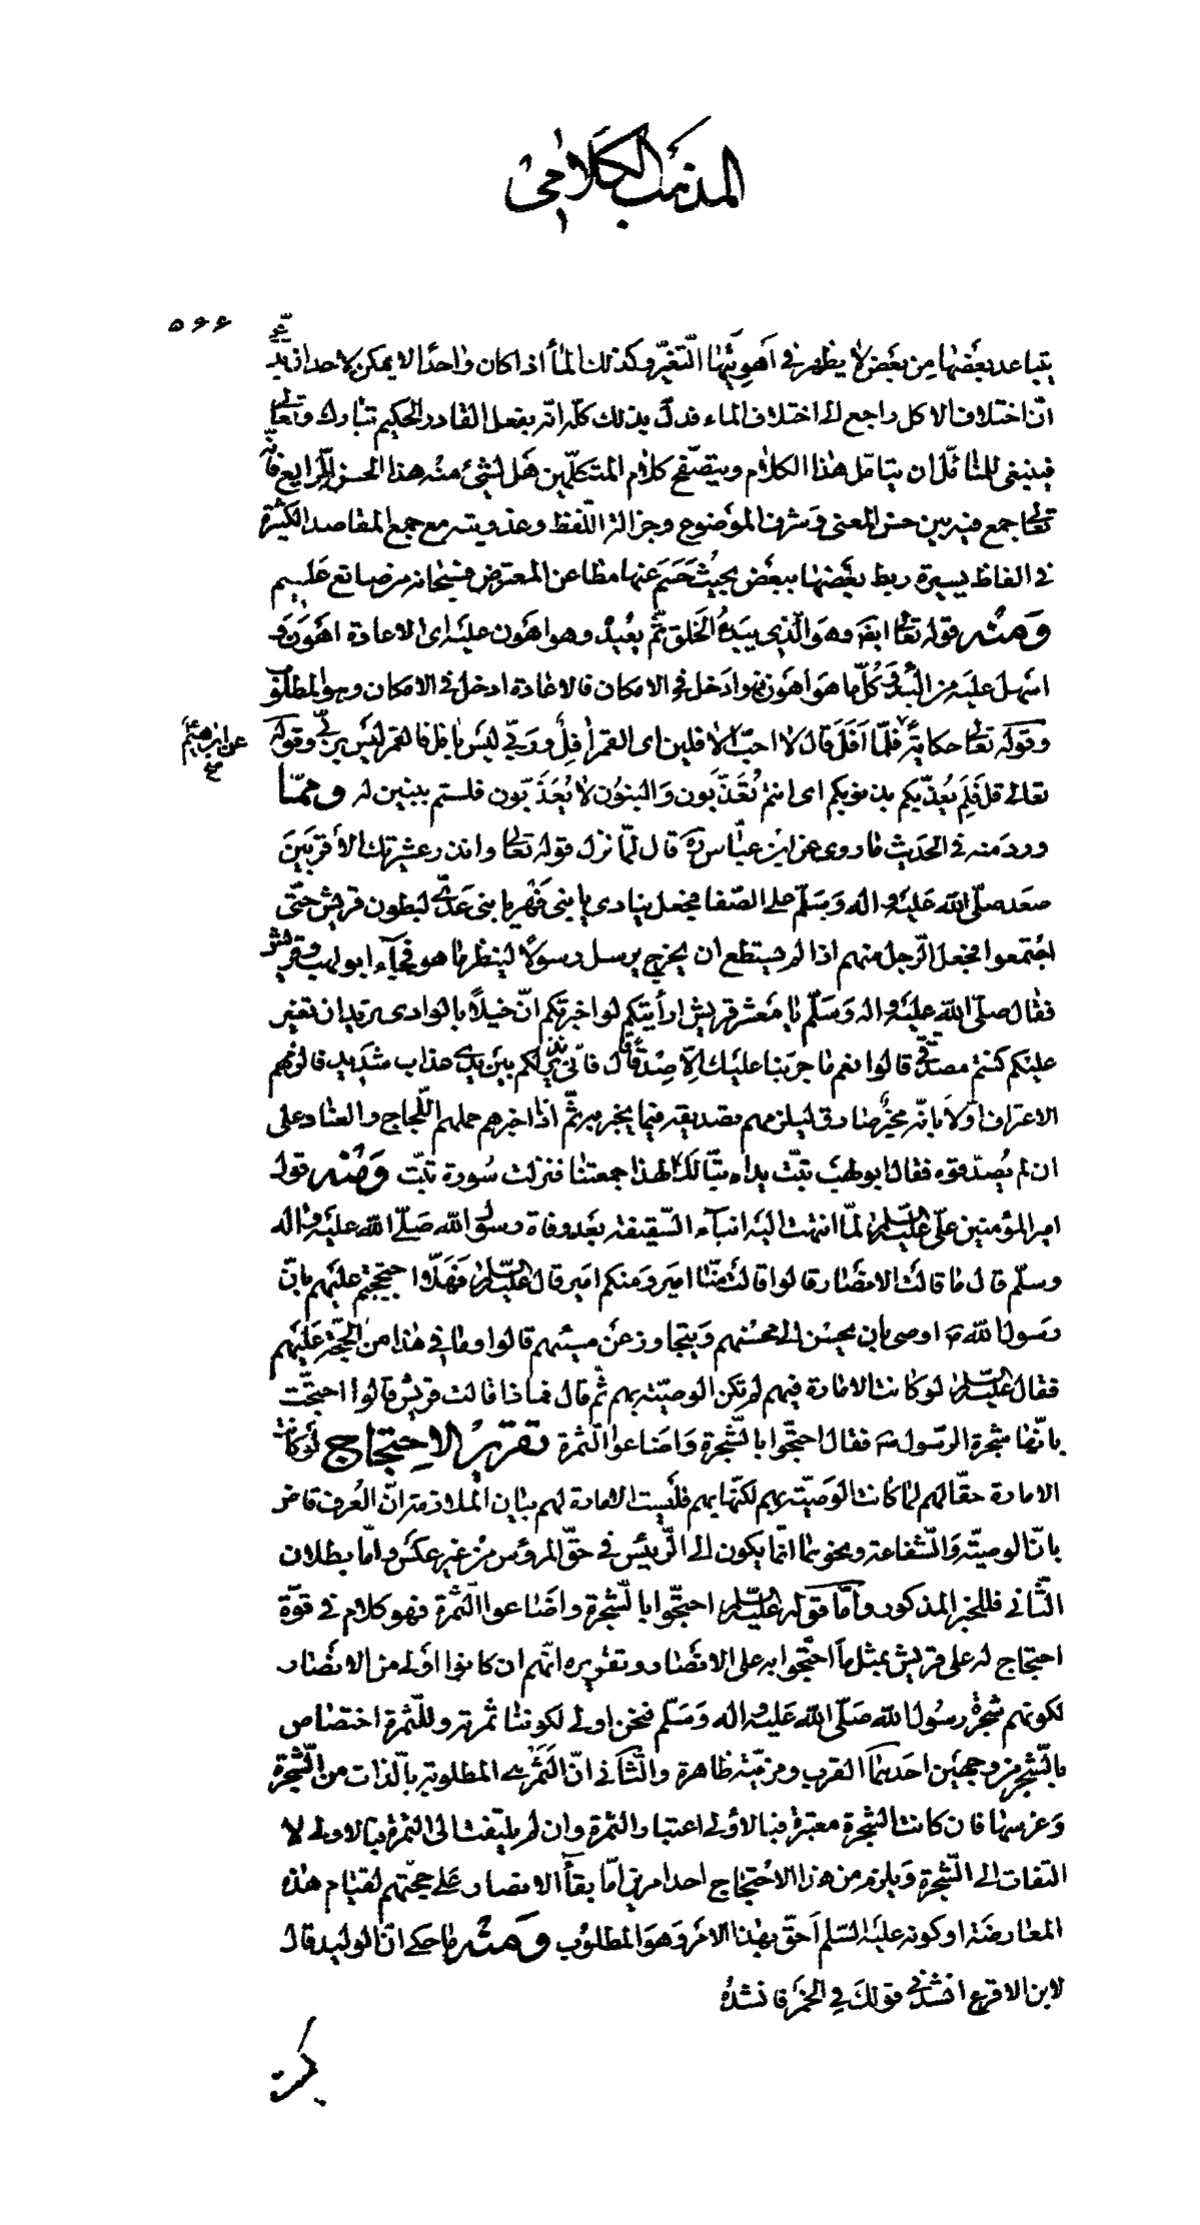 المذهب الكلامي
۵۶۶
يتباعد بعضها من بعض لا يظهر في اهويتها التغير وكذلك الماء اذا كان واحدا لا يمكن لاحد ان يدعي
ان اختلاف الاكل راجع الى اختلاف الماء فدل بذلك كله انه بفعل القادر الحكيم تبارك وتعالى
فينبغي للمتأمل ان يتأمل هذا الكلام ويتصفح كلام المتكلمين هل لشيء منه هذا الحسن الرايع فانه
تعالى جمع فيه بين حسن المعنى وشرف الموضوع وجزالة اللفظ وعذوبته مع جمع المقاصد الكثيرة
في الفاظ يسيرة ربط بعضها ببعض بحيث حسم عنها مطاعن المعترض فسبحانه من صانع عليم
ومنه قوله تعالى ايضا وهو الذي يبدؤ الخلق ثم يعيده وهو اهون عليه اى الاعادة اهون و
اسهل عليه من البدء وكل ما هو اهون فهو ادخل في الامكان فالاعادة ادخل في الامكان وهو المطلوب
وقوله تعالى حكاية فلما افل قال لا احب الافلين اى القمر افل وربي ليس بافل فالقمر ليس بربي وقوله
عن ابرهيم صح
تعالى قل فلم يعذبكم بذنوبكم اى انتم تعذبون والبنون لا يعذبون فلستم ببنين له ومما
ورد منه في الحديث ما روى عن ابن عباس قال لما نزل قوله تعالى وانذر عشيرتك الاقربين
صعد صلى الله عليه واله وسلم على الصفا فجعل ينادى يا بني فهر يا بني عدى لبطون قريش حتى
اجتمعوا فجعل الرجل منهم اذا لم يستطع ان يخرج يرسل رسولا لينظر ما هو فجاء ابو لهب وقريش
فقال صلى الله عليه واله وسلم يا معشر قريش ارأيتكم لو اخبرتكم ان خيلا بالوادى تريد ان تغير
عليكم كنتم مصدقي قالوا نعم ما جربنا عليك الا صدقا قال فاني نذير لكم بين يدى عذاب شديد فالزمهم
الاعتراف اولا بانه مخبر صادق ليلزمهم تصديقه فيما يخبر به ثم اذا اخبرهم حملهم اللجاج والعناد على
ان لم يصدقوه فقال ابو لهب تبت يداه تبا لك الهذا جمعتنا فنزلت سورة تبت ومنه قول
امير المؤمنين على عليه السلم لما انتهت اليه انباء السقيفة بعد وفاة رسول الله صلى الله عليه واله
وسلم قال ما قالت الانصار قالوا قالت منا امير ومنكم امير قال عليه السلم فهلا احتججتم عليهم بان
رسول الله ص اوصى بان يحسن الى محسنهم ويتجاوز عن مسيئهم قالوا وما في هذا من الحجة عليهم
فقال عليه السلم لو كانت الامارة فيهم لم تكن الوصية بهم ثم قال فماذا قالت قريش قالوا احتجت
بانها شجرة الرسول ص فقال احتجوا بالشجرة واضاعوا الثمرة تقرير الاحتجاج لو كانت
الامارة حقا لهم لما كانت الوصية بهم لكنها بهم فليست الامارة لهم بيان الملازمة ان العرف قاض
بان الوصية والشفاعة ونحوهما انما يكون الى الرئيس في حق المرؤس من غير عكس واما بطلان
الثاني فللخبر المذكور واما قوله عليه السلم احتجوا بالشجرة واضاعوا الثمرة فهو كلام في قوة
احتجاج له على قريش بمثل ما احتجوا به على الانصار وتقريره انهم ان كانوا اولى من الانصار
لكونهم شجرة رسول الله صلى الله عليه واله وسلم فنحن اولى لكوننا ثمرته وللثمرة اختصاص
بالشجر من وجهين احدهما القرب ومزيته ظاهرة والثاني ان الثمرة هي المطلوبة بالذات من الشجرة
وغرسها فان كانت الشجرة معتبرة فبالاولى اعتبار الثمرة وان لم يلتفت الى الثمرة فبالاولى لا
التفات الى الشجرة ويلزم من هذا الاحتجاج احد امرين اما بقاء الانصار على حجتهم لقيام هذه
المعارضة او كونه عليه السلم احق بهذا الامر وهو المطلوب ومنه ما حكى ان الوليد قال
لابن الاقرع انشدني قولك في الخمر فانشده